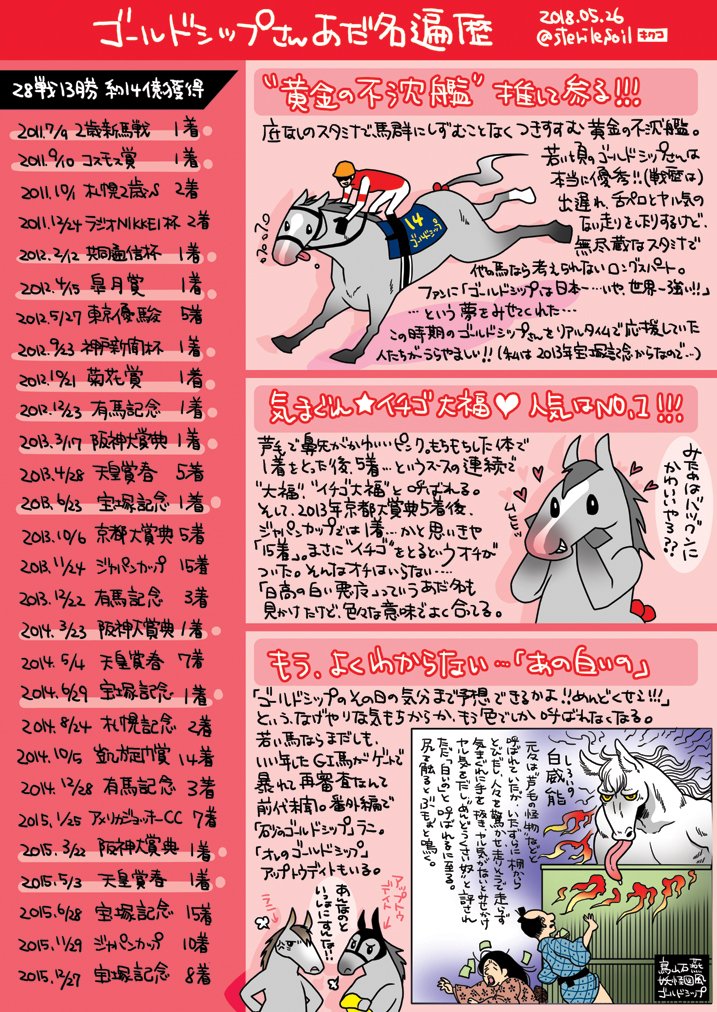 ゴールドシップさんあだ名遍歴
2018.05.26
@sterilesoil キワコ
28戦13勝 約14億獲得
2011.7/9 2歳新馬戦 1着
2011.9/10 コスモス賞 1着
2011.10/1 札幌2歳S 2着
2011.12/24 ラジオNIKKEI杯 2着
2012.2/12 共同通信杯 1着
2012.4/15 皐月賞 1着
2012.5/27 東京優駿 5着
2012.9/23 神戸新聞杯 1着
2012.10/21 菊花賞 1着
2012.12/23 有馬記念 1着
2013.3/17 阪神大賞典 1着
2013.4/28 天皇賞春 5着
2013.6/23 宝塚記念 1着
2013.10/6 京都大賞典 5着
2013.11/24 ジャパンカップ 15着
2013.12/22 有馬記念 3着
2014.3/23 阪神大賞典 1着
2014.5/4 天皇賞春 7着
2014.6/29 宝塚記念 1着
2014.8/24 札幌記念 2着
2014.10/5 凱旋門賞 14着
2014.12/28 有馬記念 3着
2015.1/25 アメリカジョッキーCC 7着
2015.3/22 阪神大賞典 1着
2015.5/3 天皇賞春 1着
2015.6/28 宝塚記念 15着
2015.11/29 ジャパンカップ 10着
2015.12/27 宝塚記念 8着
"黄金の不沈艦" 推して参る!!!
底なしのスタミナで馬群にしずむことなくつきすすむ 黄金の不沈艦。
若い頃のゴールドシップさんは
本当に優秀!!(戦歴は)
出遅れ、舌ペロとヤル気の
ない走りをしたりするけど、
無尽蔵なスタミナで
他の馬なら考えられないロングスパート。
ファンに「ゴールドシップは日本一…いや、世界一強い!!」
…という夢をみせてくれた…
この時期のゴールドシップさんをリアルタイムで応援していた
人たちがうらやましい!!(私は2013年宝塚記念からなので…)
14
ゴールドシップ
気まぐれ★イチゴ大福♥人気はNO,1!!!
芦毛で鼻先がかわいいピンク。もちもちした体で
1着をとった後、5着…というペースの連続で
"大福"、"イチゴ大福"と呼ばれる。
そして、2013年京都大賞典5着後、
ジャパンカップでは1着…かと思いきや
「15着」。まさに"イチゴ"をとるというオチが
ついた。そんなオチはいらない…
「日高の白い悪魔」っていうあだ名も
見かけたけど、色々な意味でよく合ってる。
みためはバツグンに
かわいいやろ??
もう、よくわからない…「あの白いの」
「ゴールドシップのその日の気分まで予想できるかよ!!めんどくせェ!!!」
という、なげやりな気もちからか、もう色でしか呼ばれなくなる。
若い馬ならまだしも、
いい年したGI馬がゲートで
暴れて再審査なんて
前代未聞。番外編で
「砂のゴールドシップ」ラニ。
「オレのゴールドシップ」
アップトゥデイトもいる。
ラニ→
あんなのと
いっしょにすんな!!
アップトゥ
デイト
しろいの
白威能
元々は"芦毛の怪物"などと
呼ばれていたが、いたずらに柵から
とびだし、人々を驚かせ走りそうで走らず
気まぐれに手を抜き、ヤル気がないとみせかけ
ヤル気をだし、"めんどうくさい奴"と評され
ただ、"白いの"と呼ばれるに至る。
尻を触ると"ぶもォ"と鳴く。
鳥山石燕
妖怪図風
ゴールドシップ